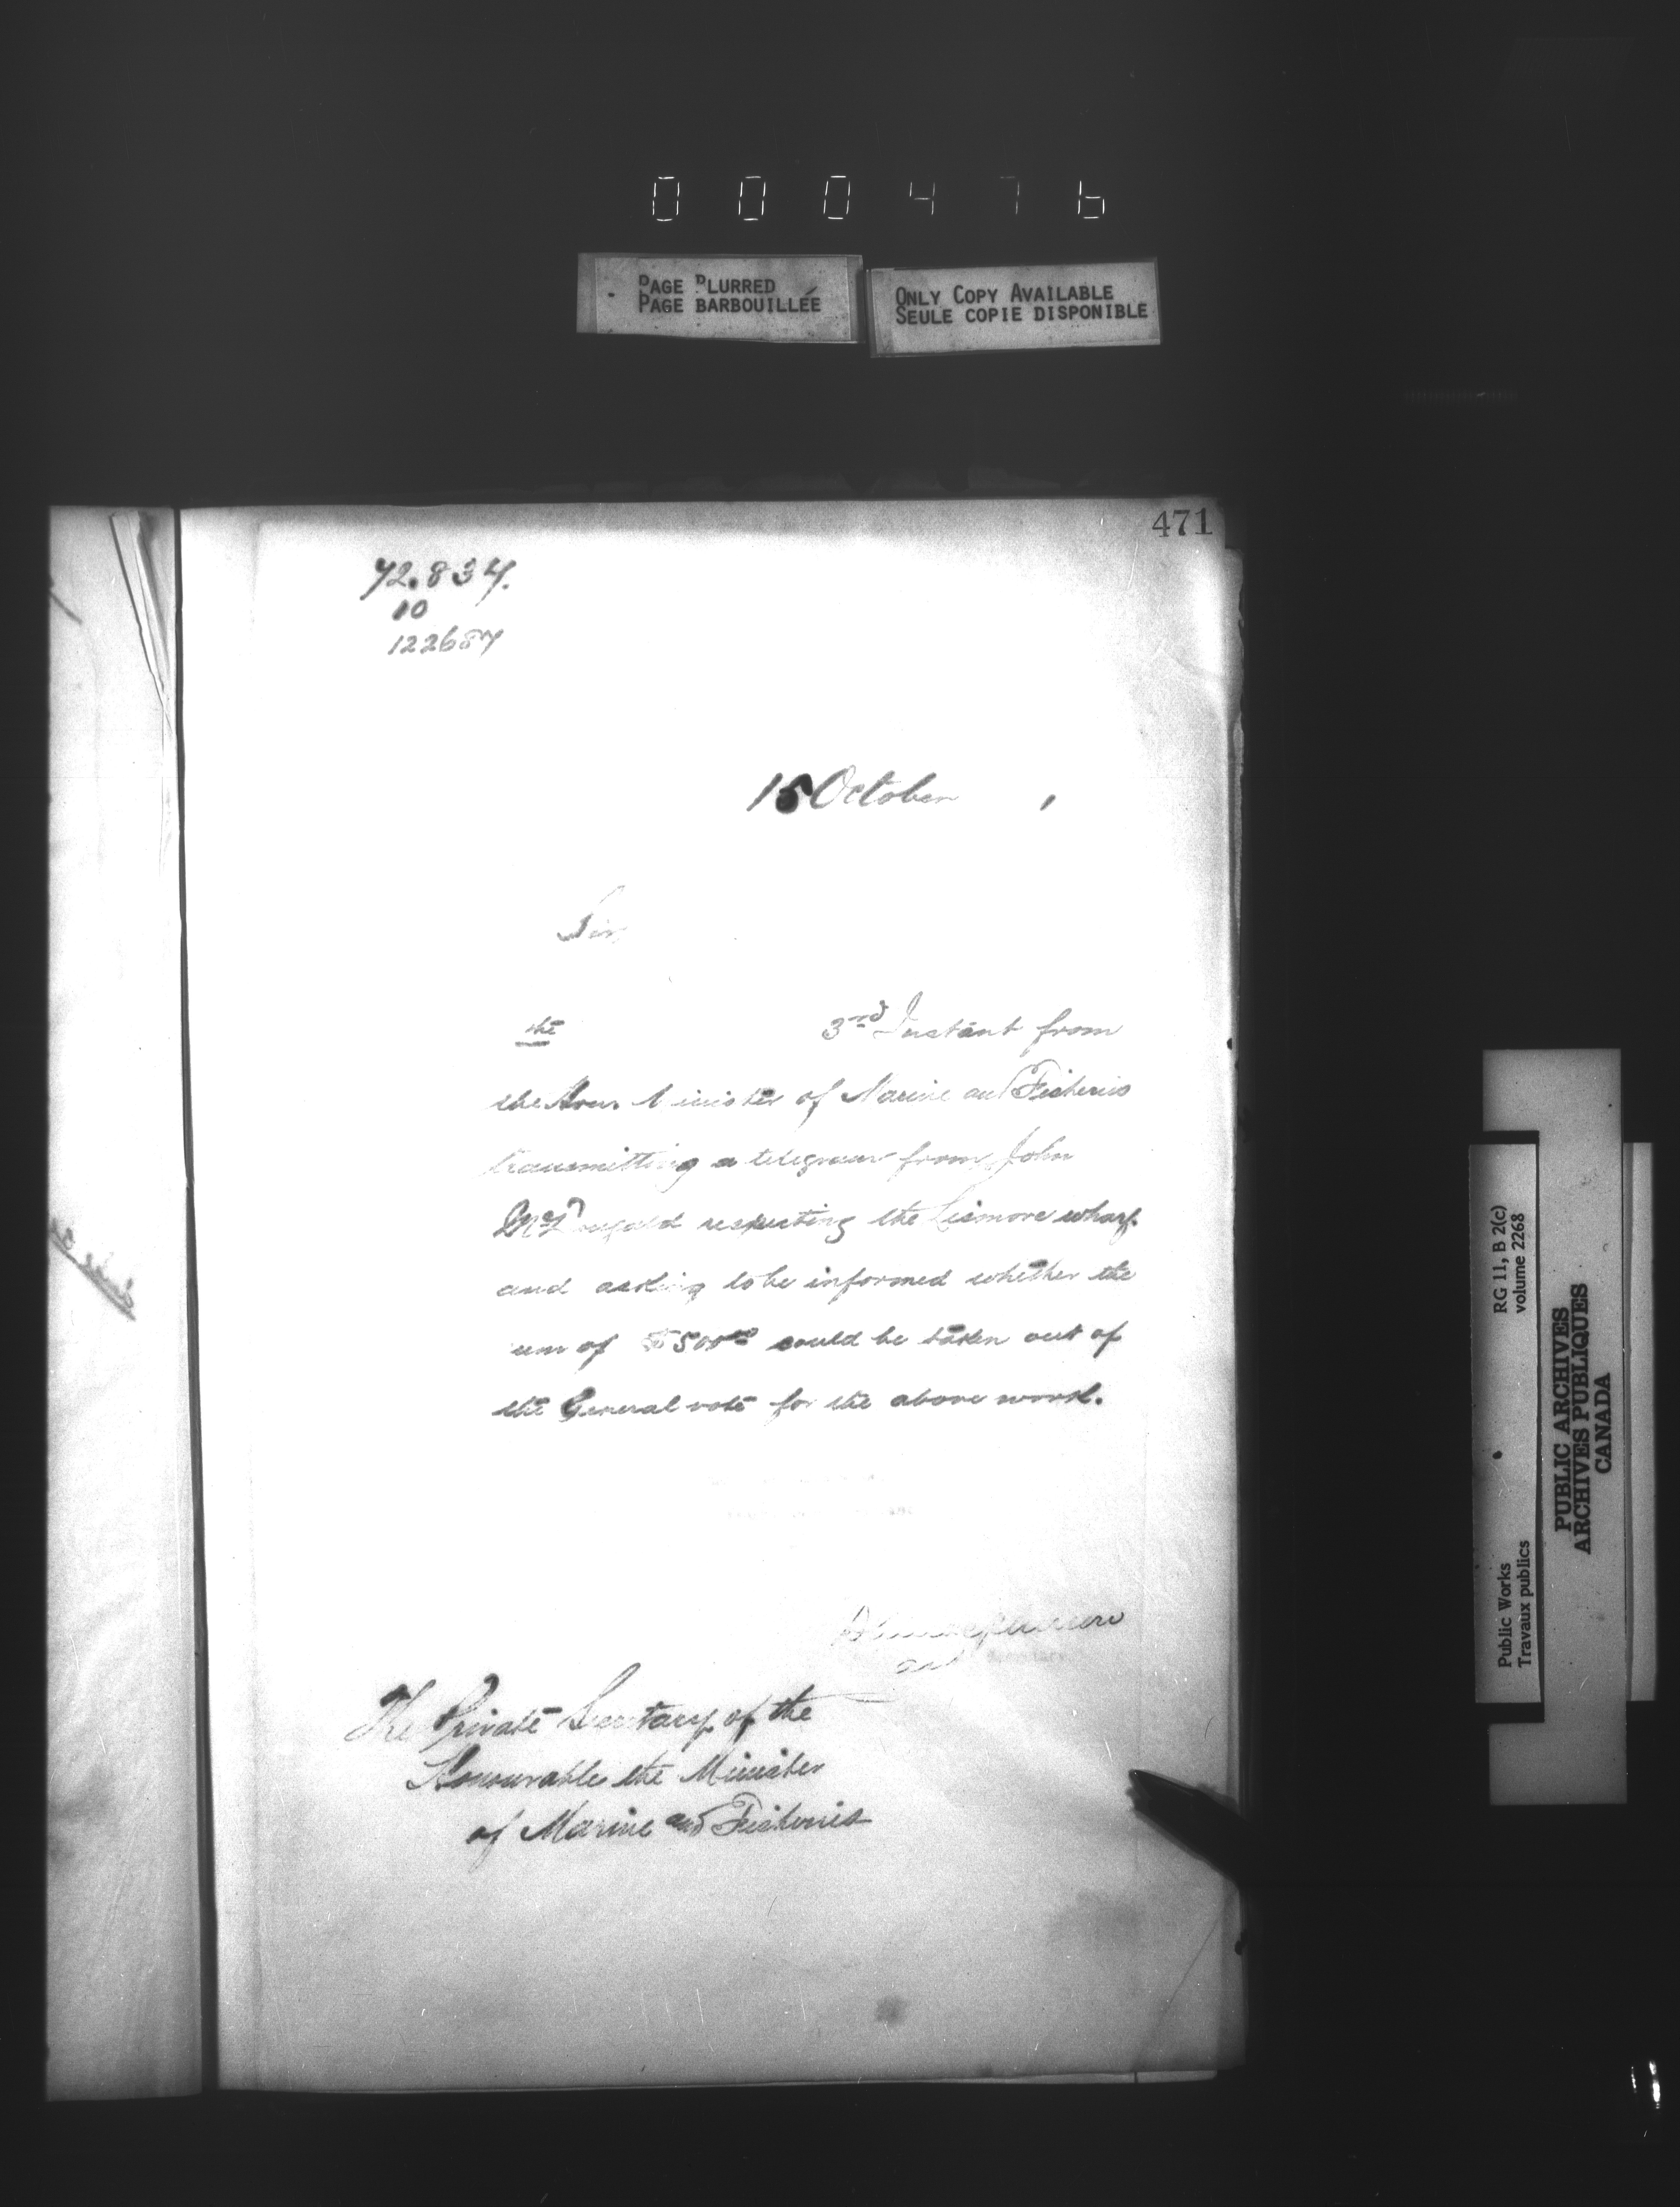 000476
PAGE BLURRED
PAGE BARBOUILLÉE
ONLY COPY AVAILABLE
SEULE COPIE DISPONIBLE
471
72.834.
10
122687
15 October ,
Sir
the 3rd Instant from
the Hon. Minister of Marine and Fisheries
transmitting a telegram from John
McDougald respecting the Lismore wharf
and asking to be informed whether the
um of $500.00 could be taken out of
the General vote for the above work.
Secretary.
The Private Secretary of the
Honourable the Minister
of Marine and Fisheries
Public Works
Travaux publics
RG 11, B 2(c)
volume 2268
PUBLIC ARCHIVES
ARCHIVES PUBLIQUES
CANADA